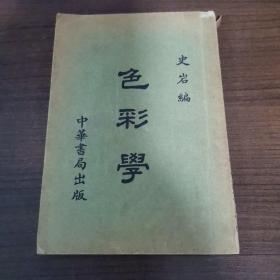 史岩編
色彩學
中華書局出版